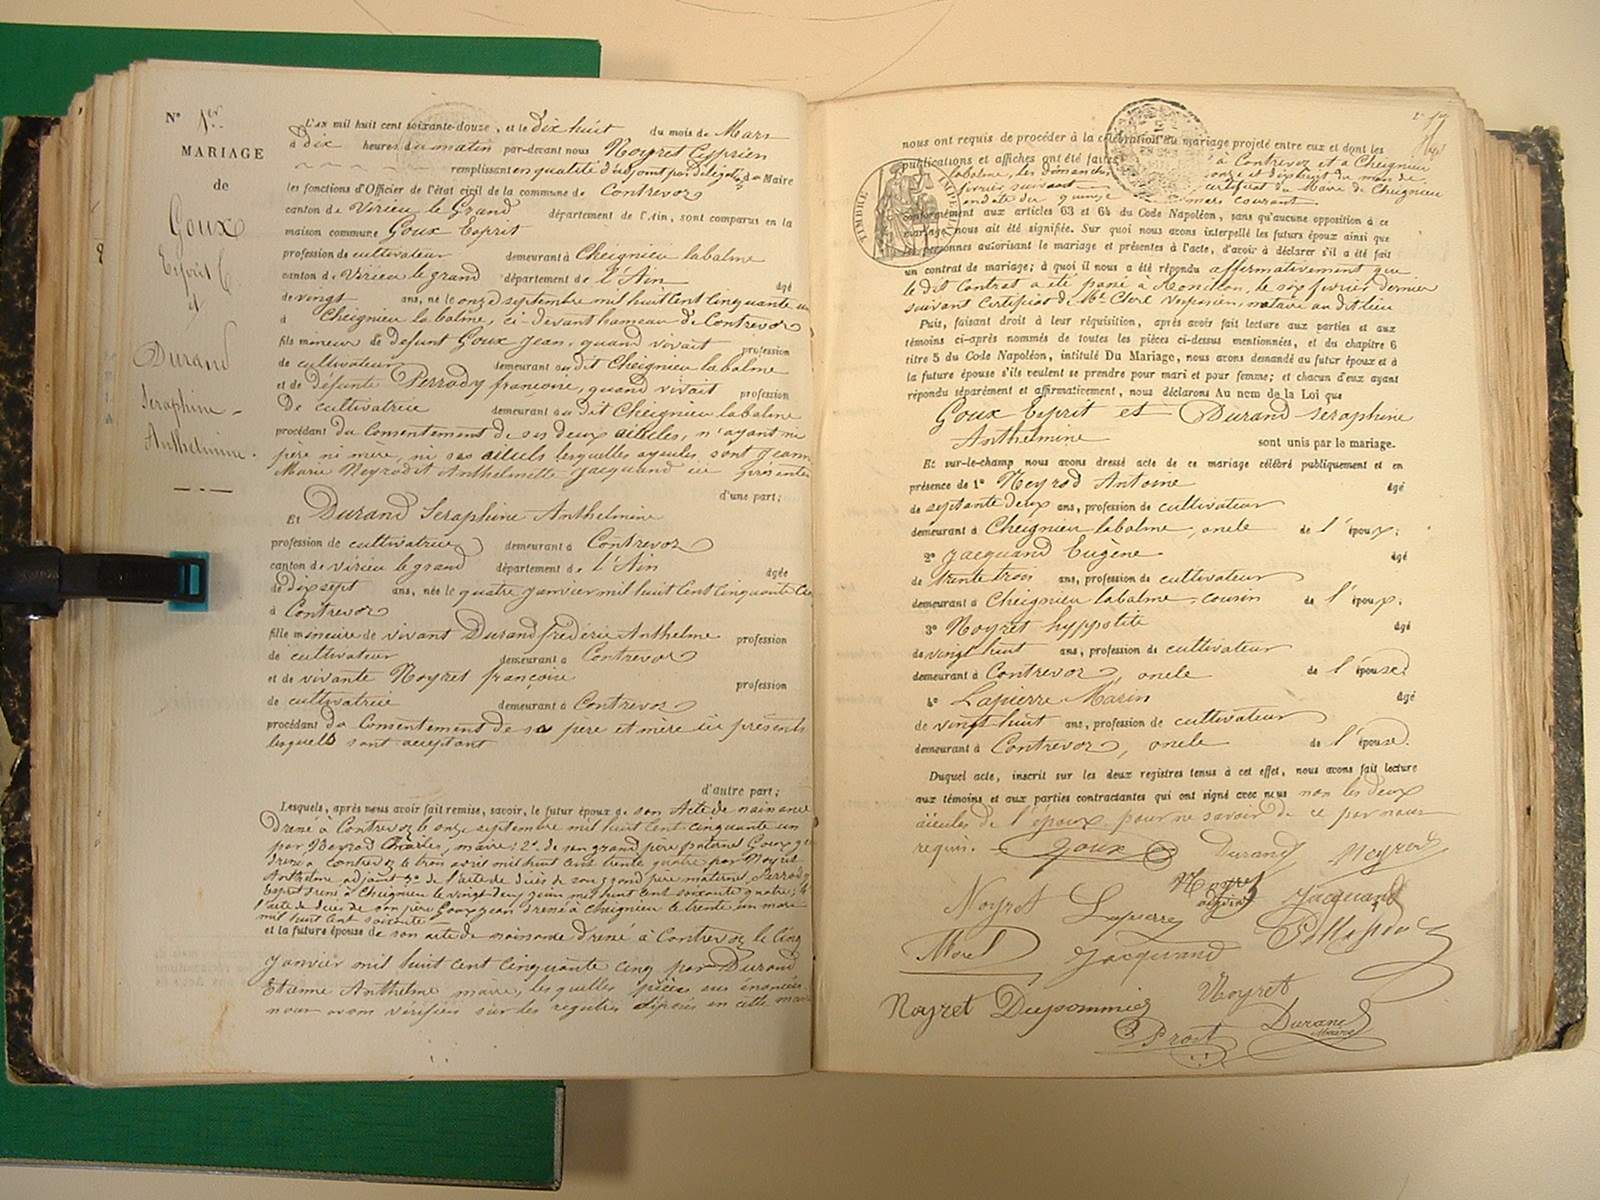 N° 1er
MARIAGE
de
Goux
Esprit
et
Durand
Seraphine
Anthelmine.
L'AN mil huit cent soixante-douze, et le dix huit du mois de Mars
à dix heures du matin par-devant nous Noyret Cyprien
remplissant en qualité d'adjoint par délégation du Maire
les fonctions d'Officier de l'état civil de la commune de Contrevoz
canton de Virieu le Grand département de l'Ain, sont comparus en la
maison commune Goux Esprit
profession de cultivateur demeurant à Cheignieu labalme
canton de Virieu le grand département de l'Ain âgé
de vingt ans, né le onze septembre mil huit cent cinquante un
à Cheignieu labalme, ci-devant hameau de Contrevoz
fils mineur de defunt Goux Jean, quand vivait profession
de cultivateur demeurant au dit Cheignieu labalme
et de défunte Perrody françoise, quand vivait profession
de cultivatrice demeurant au dit Cheignieu labalme
procédant du Consentement de ses deux aieules, n'ayant ni
père ni mère, ni ses aieuls lesquelles ayeules sont Jeanne
Marie Neyrod et Anthelmette Jacquand ici présentes
d'une part;
Et Durand Seraphine Anthelmine
profession de cultivatrice demeurant à Contrevoz
canton de virieu le grand département de l'Ain âgée
de dix sept ans, née le quatre janvier mil huit cent cinquante
à Contrevoz
fille mineure de vivant Durand frédéric Anthelme profession
de cultivateur demeurant à Contrevoz
et de vivante Noyret françoise profession
de cultivatrice demeurant à Contrevoz
procédant du Consentement de sa père et mère ici présents
lesquels sont acceptant
d'autre part;
Lesquels, après nous avoir fait remise, savoir, le futur époux de son Acte de naissance
dressé à Contrevoz le onze septembre mil huit cent cinquante un
par Neyrod Charles, maire; 2° de son grand père paternel Goux
dressé à Contrevoz le trois avril mil huit cent trente quatre par Noyret
Anthelme adjoint 3° de l'acte de décès de son grand père maternel, Perrody
Esprit dressé à Cheignieu le vingt deux juin mil huit cent soixante quatre;
l'acte de décès de son père Goux jean dressé à Cheignieu le trente un mars
mil huit cent soixante
et la future épouse de son acte de naissance dressé à Contrevoz le cinq
janvier mil huit cent cinquante cinq par Durand
Etienne Anthelme maire, lesquelles pièces sus énoncées
nous avons vérifiées sur les registres déposés en cette mairie
nous ont requis de procéder à la célébration du mariage projeté entre eux et dont les
publications et affiches ont été faites à Contrevoz et à Cheignieu
labalme, les dimanches onze et dix huit du mois de
février suivant certificat du Maire de Cheignieu
en date du quinze mars courant
conformément aux articles 63 et 64 du Code Napoléon, sans qu'aucune opposition à ce
mariage nous ait été signifiée. Sur quoi nous avons interpellé les futurs époux ainsi que
les personnes autorisant le mariage et présentes à l'acte, d'avoir à déclarer s'il a été fait
un contrat de mariage; à quoi il nous a été répondu affirmativement que
le dit Contrat a été passé à Rossillon, le six février dernier
suivant Certificat de Me Clerc Vespasien, notaire au dit lieu
Puis, faisant droit à leur réquisition, après avoir fait lecture aux parties et aux
témoins ci-après nommés de toutes les pièces ci-dessus mentionnées, et du chapitre 6
titre 5 du Code Napoléon, intitulé Du Mariage, nous avons demandé au futur époux et à
la future épouse s'ils veulent se prendre pour mari et pour femme; et chacun d'eux ayant
répondu séparément et affirmativement, nous déclarons Au nom de la Loi que
Goux Esprit et Durand seraphine
Anthelmine sont unis par le mariage.
Et sur-le-champ nous avons dressé acte de ce mariage célébré publiquement et en
présence de 1° Neyrod Antoine âgé
de septante deux ans, profession de cultivateur
demeurant à Cheignieu labalme, oncle de l'époux;
2° Jacquand Eugène âgé
de trente trois ans, profession de cultivateur
demeurant à Cheignieu labalme, cousin de l'époux;
3° Noyret hyppolite âgé
de vingt huit ans, profession de cultivateur
demeurant à Contrevoz, oncle de l'épouse
4° Lapierre Marin âgé
de vingt huit ans, profession de cultivateur
demeurant à Contrevoz, oncle de l'épouse.
Duquel acte, inscrit sur les deux registres tenus à cet effet, nous avons fait lecture
aux témoins et aux parties contractantes qui ont signé avec nous non les deux
aieules de l'époux pour ne savoir de ce par nous
requis. Goux Durand Neyrod
Noyret Lapierre Noyret Jacquand
Morel Jacquand
Noyret Dupommier Noyret
Prost Durand
Maire
TIMBRE IMPERIAL